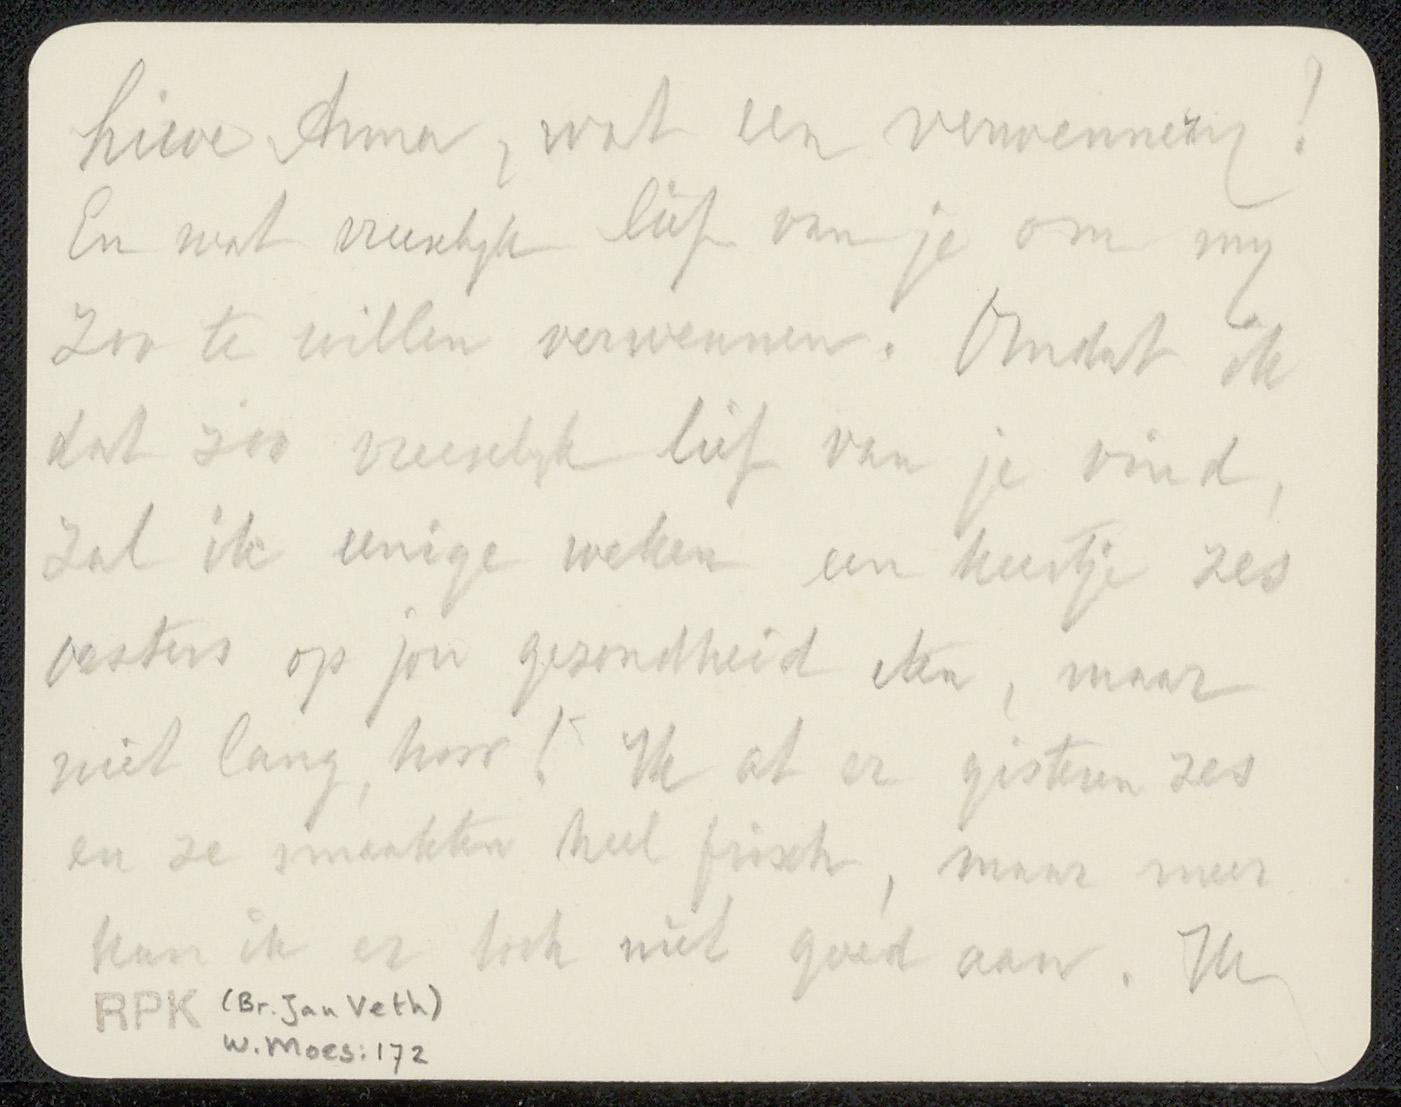 Lieve Anna, wat een verwennerij!
En wat vreeselijk lief van je om mij
zoo te willen verwennen. Omdat ik
dat zoo vreeselijk lief van je vind,
zal ik eenige weken een keertje zes
oesters op jou gezondheid eten, maar
niet lang, hoor! Ik at er gisteren zes
en ze smaakten heel frisch, maar meer
kan ik er toch niet goed aan. Ik
RPK (Br. Jan Veth)
W. Moes: 172